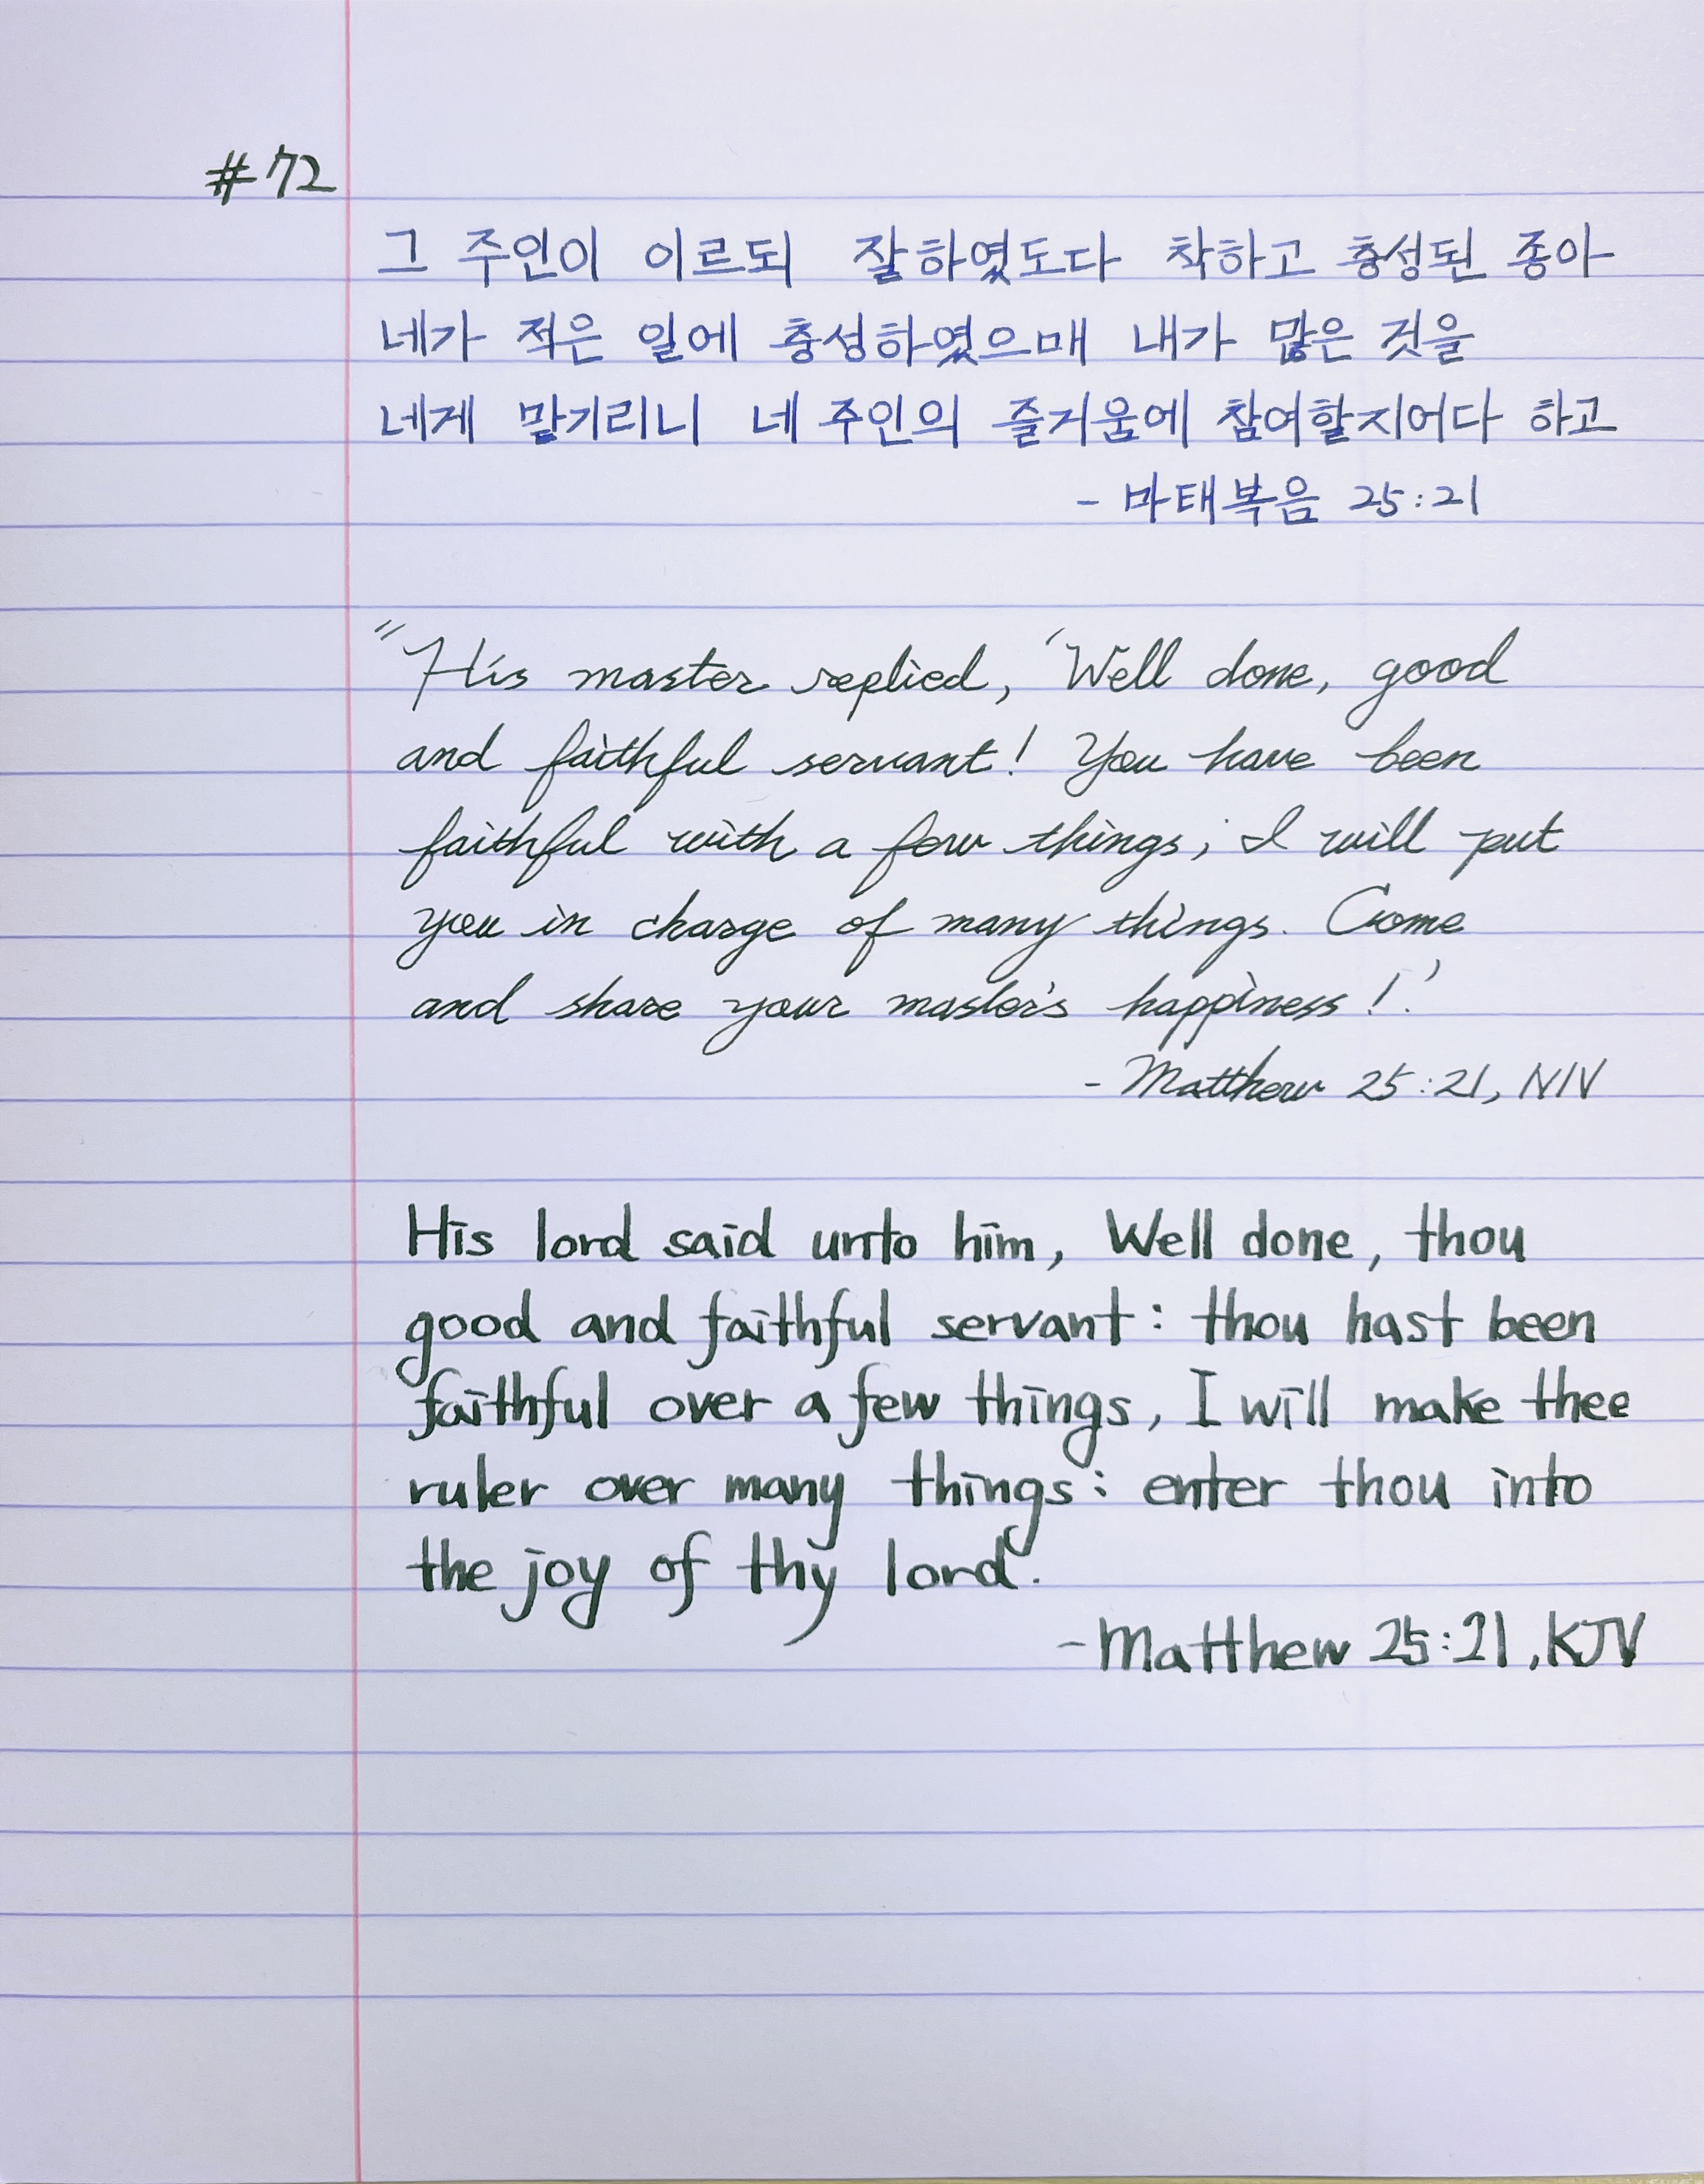 #72
그 주인이 이르되 잘하였도다 착하고 충성된 종아
네가 적은 일에 충성하였으매 내가 많은 것을
네게 맡기리니 네 주인의 즐거움에 참여할지어다 하고
- 마태복음 25:21
"His master replied, 'Well done, good
and faithful servant! You have been
faithful with a few things; I will put
you in charge of many things. Come
and share your master's happiness!'
- Matthew 25:21, NIV
His lord said unto him, Well done, thou
good and faithful servant: thou hast been
faithful over a few things, I will make thee
ruler over many things: enter thou into
the joy of thy lord.
- Matthew 25:21, KJV